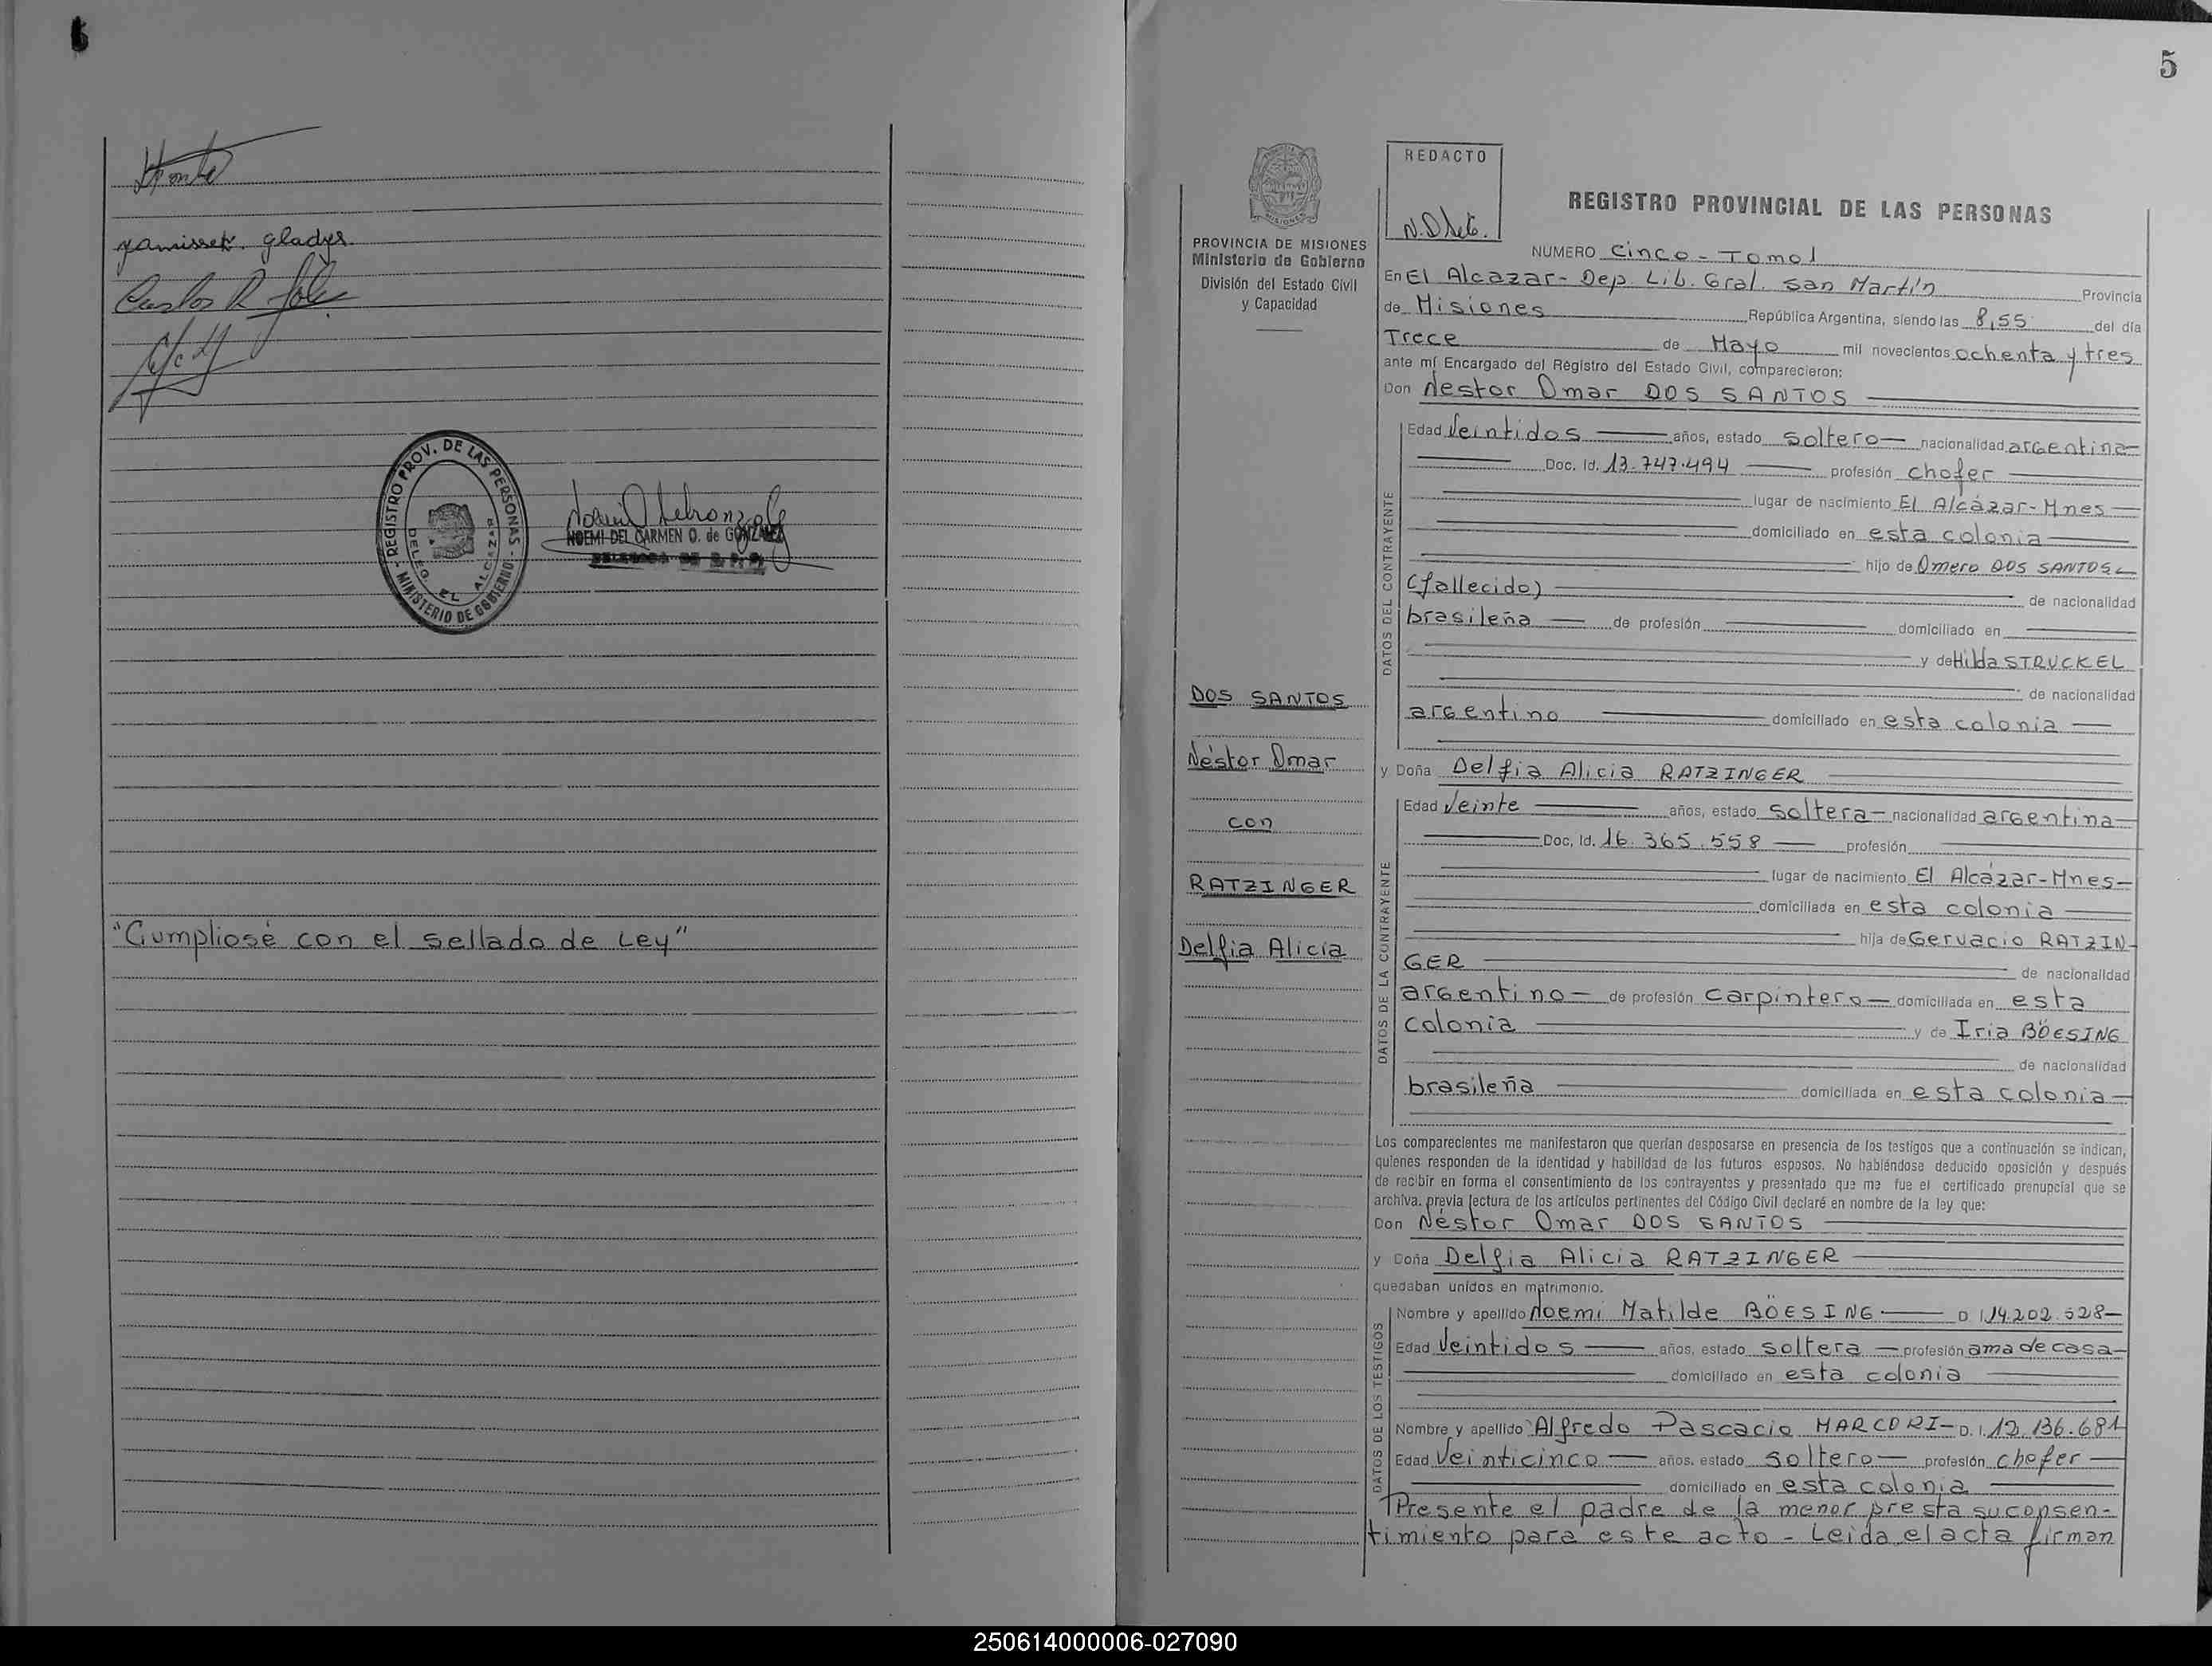 yamissek. gladys
Carlos R.
REGISTRO PROV. DE LAS PERSONAS
MINISTERIO DE GOBIERNO
DELEG. EL ALCAZAR
NOEMI DEL CARMEN O. de GONZALEZ
DELEGADA DE R. P. P.
"Cumpliose con el sellado de Ley"
5
REDACTO
PROVINCIA DE MISIONES
Ministerio de Gobierno
División del Estado Civil
y Capacidad
REGISTRO PROVINCIAL DE LAS PERSONAS
NUMERO Cinco - Tomo I
En El Alcazar - Dep. Lib. Gral. San Martín Provincia
de Misiones República Argentina, siendo las 8,55 del día
Trece de Mayo mil novecientos ochenta y tres
ante mí Encargado del Registro del Estado Civil, comparecieron:
Don Nestor Omar DOS SANTOS
DATOS DEL CONTRAYENTE
Edad Veintidos años, estado soltero nacionalidad argentina
Doc. Id. 13.747.494 profesión chofer
lugar de nacimiento El Alcázar-Mnes
domiciliado en esta colonia
hijo de Omero DOS SANTOS
(fallecido) de nacionalidad
brasileña de profesión domiciliado en
y de Hilda STRUCKEL
de nacionalidad
argentino domiciliado en esta colonia
DOS SANTOS
Néstor Omar
con
RATZINGER
Delfia Alicia
y Doña Delfia Alicia RATZINGER
DATOS DE LA CONTRAYENTE
Edad Veinte años, estado Soltera nacionalidad argentina
Doc, Id. 16.365.558 profesión
lugar de nacimiento El Alcázar-Mnes
domiciliada en esta colonia
hija de Gervacio RATZIN-
GER de nacionalidad
argentino de profesión carpintero domiciliada en esta
colonia y de Iria BÖESING
de nacionalidad
brasileña domiciliada en esta colonia
Los comparecientes me manifestaron que querían desposarse en presencia de los testigos que a continuación se indican,
quienes responden de la identidad y habilidad de los futuros esposos. No habiéndose deducido oposición y después
de recibir en forma el consentimiento de los contrayentes y presentado que me fue el certificado prenupcial que se
archiva, previa lectura de los artículos pertinentes del Código Civil declaré en nombre de la ley que:
Don Néstor Omar DOS SANTOS
y Doña Delfia Alicia RATZINGER
quedaban unidos en matrimonio.
DATOS DE LOS TESTIGOS
Nombre y apellido Noemi Matilde BÖESING D.I. 14.202.528
Edad Veintidos años, estado soltera profesión ama de casa
domiciliado en esta colonia
Nombre y apellido Alfredo Pascacio MARCORI D.I. 12.136.681
Edad Veinticinco años. estado soltero profesión chofer
domiciliado en esta colonia
Presente el padre de la menor presta su consen-
timiento para este acto - Leida el acta firman
250614000006-027090